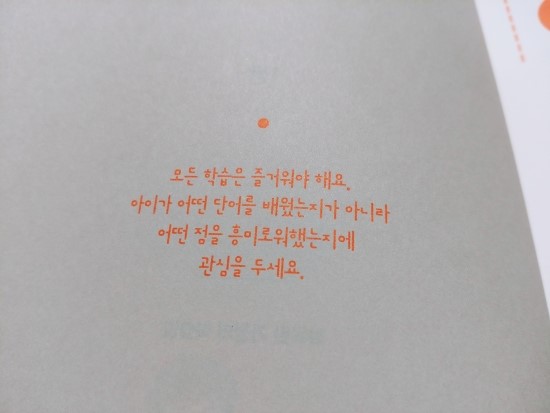 모든 학습은 즐거워야 해요.
아이가 어떤 단어를 배웠는지가 아니라
어떤 점을 흥미로워했는지에
관심을 두세요.